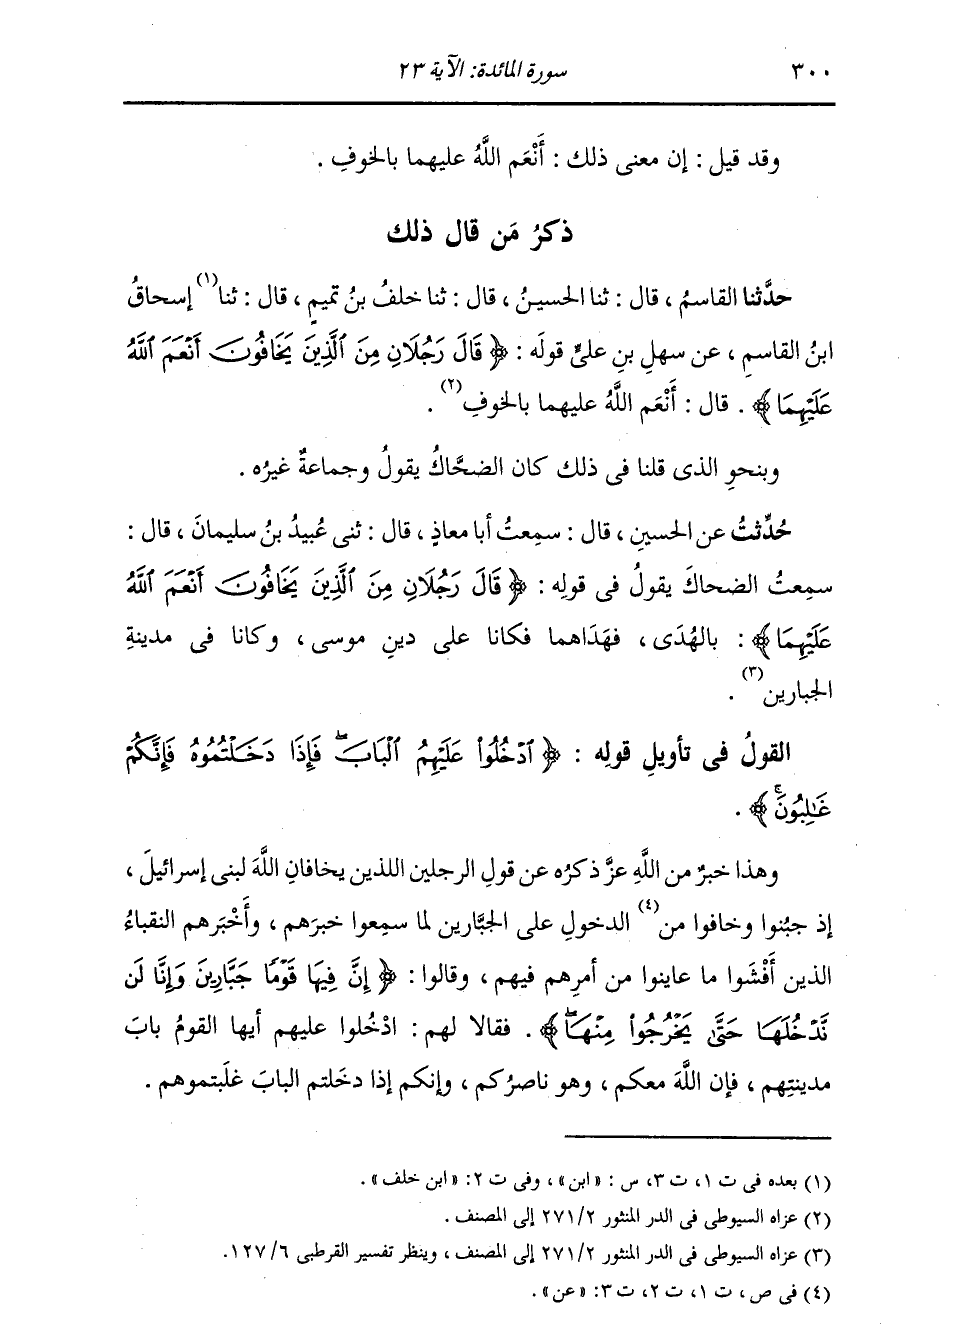 ٣٠٠ سورة المائدة: الآية ٢٣
وقد قيل : إن معنى ذلك : أَنْعَم اللَّهُ عليهما بالخوفِ .
ذكرُ مَن قال ذلك
حدَّثنا القاسمُ ، قال : ثنا الحسينُ ، قال : ثنا خلفُ بنُ تميمٍ ، قال : ثنا(١) إسحاقُ
ابنُ القاسمِ ، عن سهلِ بنِ علىٍّ قولَه : ﴿ قَالَ رَجُلَانِ مِنَ ٱلَّذِينَ يَخَافُونَ أَنْعَمَ ٱللَّهُ
عَلَيْهِمَا ﴾ . قال : أَنْعَم اللَّهُ عليهما بالخوفِ(٢) .
وبنحوِ الذى قلنا فى ذلك كان الضحَّاكُ يقولُ وجماعةٌ غيرُه .
حُدِّثتُ عن الحسينِ ، قال : سمِعتُ أبا معاذٍ ، قال : ثنى عُبيدُ بنُ سليمانَ ، قال :
سمِعتُ الضحاكَ يقولُ فى قولِه : ﴿ قَالَ رَجُلَانِ مِنَ ٱلَّذِينَ يَخَافُونَ أَنْعَمَ ٱللَّهُ
عَلَيْهِمَا ﴾ : بالهُدَى ، فهَدَاهما فكانا على دينِ موسى ، وكانا فى مدينةِ
الجبارين(٣) .
القولُ فى تأويلِ قولِه : ﴿ ٱدْخُلُوا۟ عَلَيْهِمُ ٱلْبَابَ ۖ فَإِذَا دَخَلْتُمُوهُ فَإِنَّكُمْ
غَـٰلِبُونَ ۚ ﴾ .
وهذا خبرٌ من اللَّهِ عزَّ ذكرُه عن قولِ الرجلين اللذين يخافانِ اللَّهَ لبنى إسرائيلَ ،
إذ جبُنوا وخافوا من(٤) الدخولِ على الجبَّارين لما سمِعوا خبرَهم ، وأَخْبَرهم النقباءُ
الذين أَفْشَوا ما عاينوا من أمرِهم فيهم ، وقالوا : ﴿ إِنَّ فِيهَا قَوْمًا جَبَّارِينَ وَإِنَّا لَن
نَّدْخُلَهَا حَتَّىٰ يَخْرُجُوا۟ مِنْهَا ۖ ﴾ . فقالا لهم : ادْخُلوا عليهم أيها القومُ بابَ
مدينتِهم ، فإن اللَّهَ معكم ، وهو ناصرُكم ، وإنكم إذا دخَلتم البابَ غلَبتموهم .
(١) بعده فى ت ١، ت ٣، س : «ابن» ، وفى ت ٢: «ابن خلف» .
(٢) عزاه السيوطى فى الدر المنثور ٢٧١/٢ إلى المصنف .
(٣) عزاه السيوطى فى الدر المنثور ٢٧١/٢ إلى المصنف ، وينظر تفسير القرطبى ١٢٧/٦.
(٤) فى ص، ت ١، ت ٢، ت ٣: «عن» .